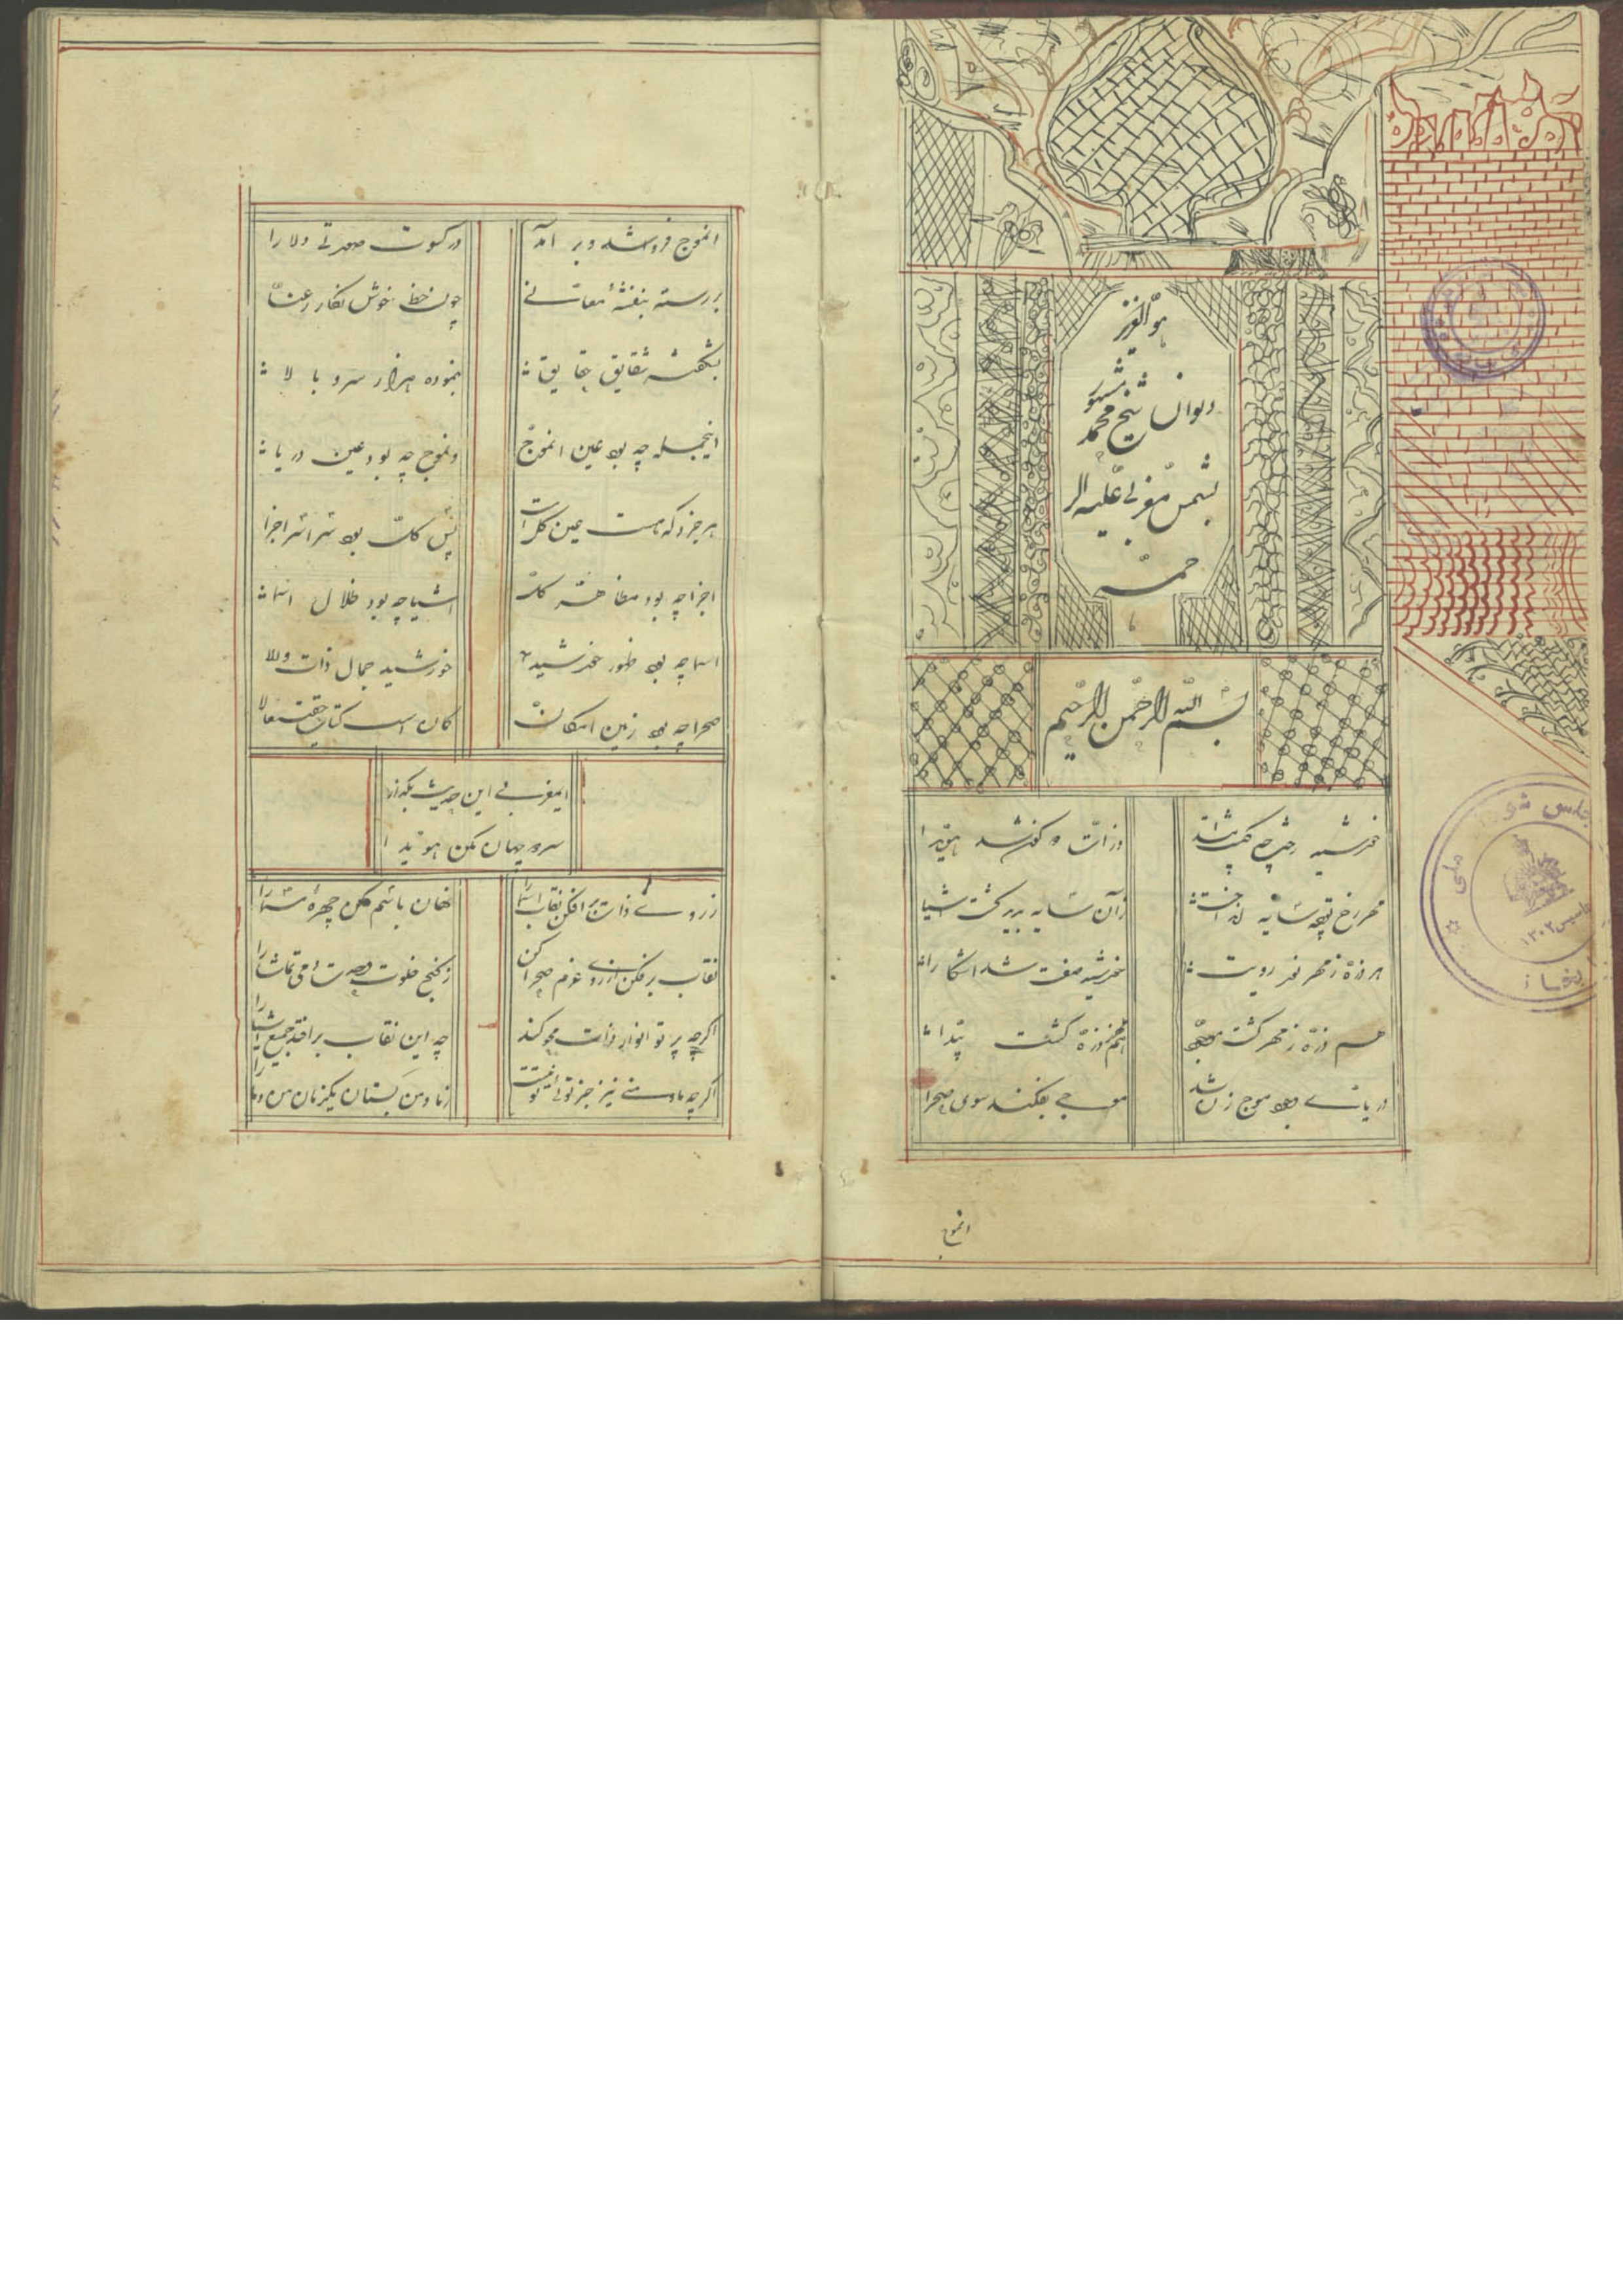 هو العزیز
دیوان شیخ محمد مشهور
بشمس مغربی علیه الر
حمه
بسم الله الرحمن الرحیم
خورشید رخت چو گشت پیدا
ذرات دو کون شد هویدا
مهر رخ تو چو سایه انداخت
زان سایه پدید گشت اشیا
هر ذره ز مهر نور رویت
خورشید صفت شد آشکارا
هم ذره ز مهر گشت موجود
هم مهر ز ذره گشت پیدا
دریای وجود موج زن شد
موجی بفکند سوی صحرا
انموج
مجلس شورای ملی
تاسیس ۱۳۰۲
انموج فرو شد و بر آمد
در کسوت صورتی دلارا
بر رسته بنفشهٔ معانی
چون خط خوش نگار رعنا
بشکفته شقایق حقایق
بنموده هزار سرو بالا
اینجمله چه بود عین انموج
وانموج چه بود عین دریا
هر جزو که هست عین کل است
پس کل بود سراسر اجزا
اجزا چه بود مظاهر کل
اشیا چه بود ظلال اسما
اسما چه بود ظهور خورشید
خورشید جمال ذات والا
صحرا چه بود زمین امکان
کان است کتاب حق تعالا
ایمغربی این حدیث بگذار
سر دو جهان مکن هویدا
ز روی ذات برافکن نقاب اسما را
نهان باسم مکن چهرهٔ مسما را
نقاب برفکن از روی عزم صحرا کن
ز کنج خلوت وحدت دمی تماشا را
اگرچه پرتو انوار ذات محو کند
چه این نقاب برافتد جمیع اشیا را
اگرچه ما و منی نیز جز توئی تو نیست
ز ما و من بستان یکزمان من و ما را